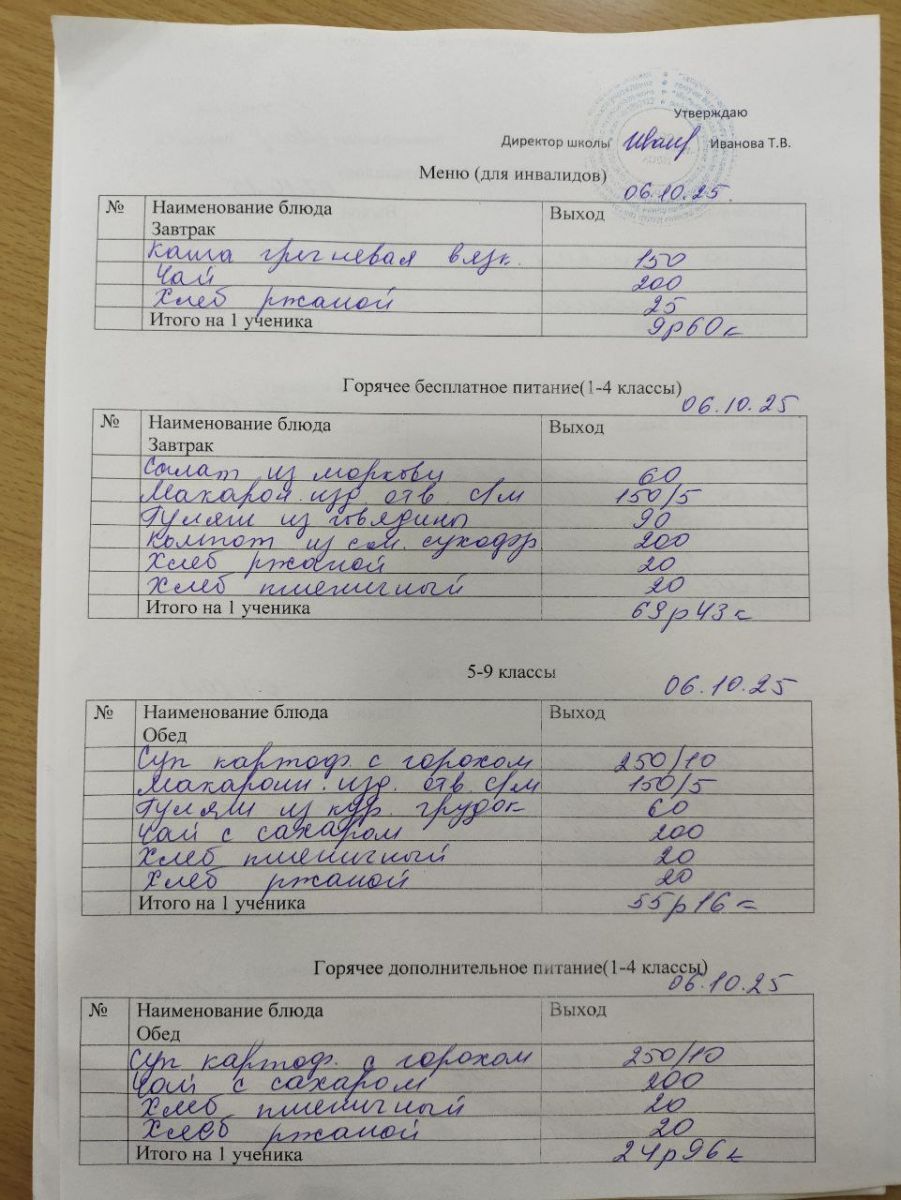 Утверждаю
Директор школы Иванова Т.В.
Меню (для инвалидов)
06.10.25
№ Наименование блюда Выход
Завтрак
Каша гречневая вязк. 150
Чай 200
Хлеб ржаной 25
Итого на 1 ученика 9р60к
Горячее бесплатное питание(1-4 классы)
06.10.25
№ Наименование блюда Выход
Завтрак
Салат из моркови 60
Макарон. изд. отв с/м 150/5
Гуляш из говядины 90
Компот из см. сухофр 200
Хлеб ржаной 20
Хлеб пшеничный 20
Итого на 1 ученика 69р43к
5-9 классы
06.10.25
№ Наименование блюда Выход
Обед
Суп картоф. с горохом 250/10
Макарони. изд. отв с/м 150/5
Гуляш из кур. грудок 60
Чай с сахаром 200
Хлеб пшеничный 20
Хлеб ржаной 20
Итого на 1 ученика 55р16к
Горячее дополнительное питание(1-4 классы)
06.10.25
№ Наименование блюда Выход
Обед
Суп картоф. с горохом 250/10
Чай с сахаром 200
Хлеб пшеничный 20
Хлеб ржаной 20
Итого на 1 ученика 24р96к